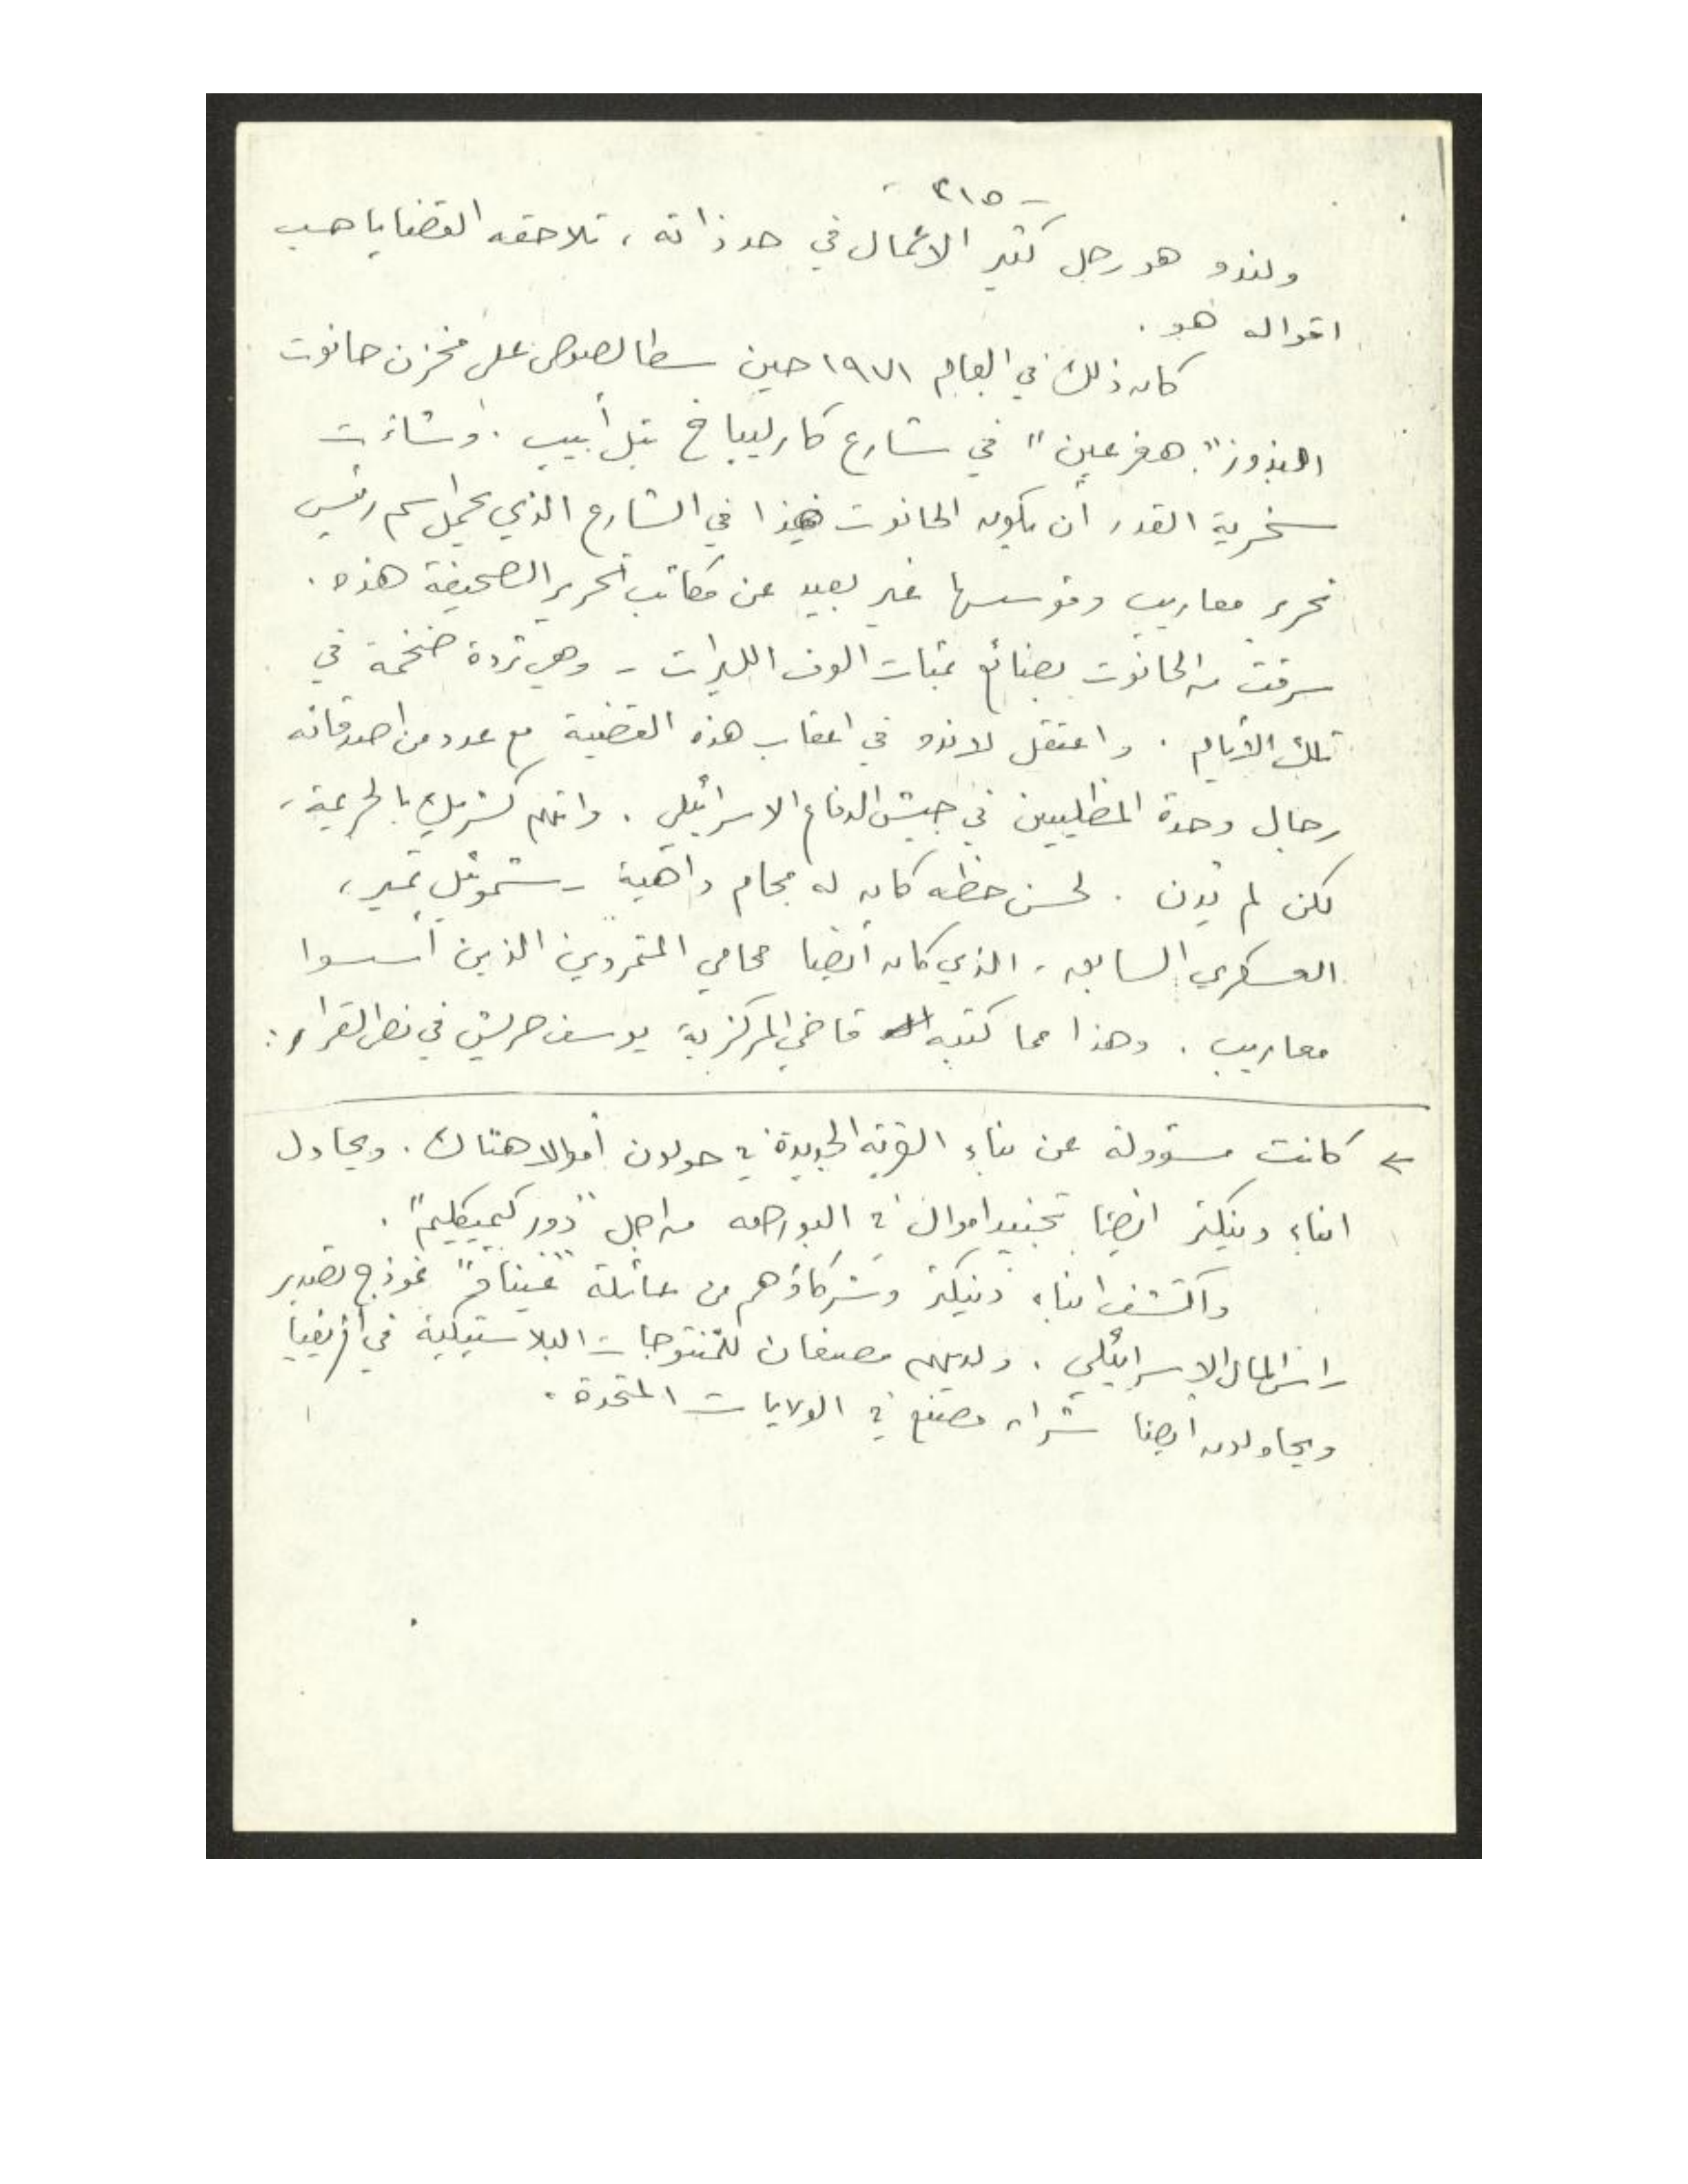 - ٢١٥ -
ولندو هو رجل كثير الاعمال في حد ذاته ، تلاحقه القضايا حسب
اقواله هو .
كان ذلك في العام ١٩٧١ حين سطا لصوص على مخزن حانوت
البذور "هفرعين" في شارع كارليباخ بتل أبيب . وشاءت
سخرية القدر أن يكون الحانوت هذا في الشارع الذي يحمل اسم رئيس
تحرير معاريب ومؤسسها غير بعيد عن مكاتب تحرير الصحيفة هذه .
سرقت من الحانوت بضائع بمئات الوف الليرات - وهي ثروة ضخمة في
تلك الأيام . واعتقل لاندو في اعقاب هذه القضية مع عدد من اصدقائه
رجال وحدة المظليين في جيش الدفاع الاسرائيلي . واتهم كشريك بالجريمة ،
لكن لم يدن . لحسن حظه كان له محام داهية - شموئيل تمير ،
العسكري السابق ، الذي كان أيضا محامي المتمردين الذين أسسوا
معاريب . وهذا مما كتبه قاضي المركزية يوسف حريش في نص القرار :
كانت مسؤولة عن بناء القرية الجديدة في حولون أموالا هناك . ويحاول
ابناء دينكلر ايضا تجنيد اموال في البورصة من اجل "دور كيميكليم" .
واكتشف ابناء دينكلر وشركاؤهم من عائلة نموذج تصدير
راس المال الاسرائيلي . ولديهم مصنعان للمنتوجات البلاستيكية في أفريقيا
ويحاولون ايضا شراء مصنع في الولايات المتحدة .